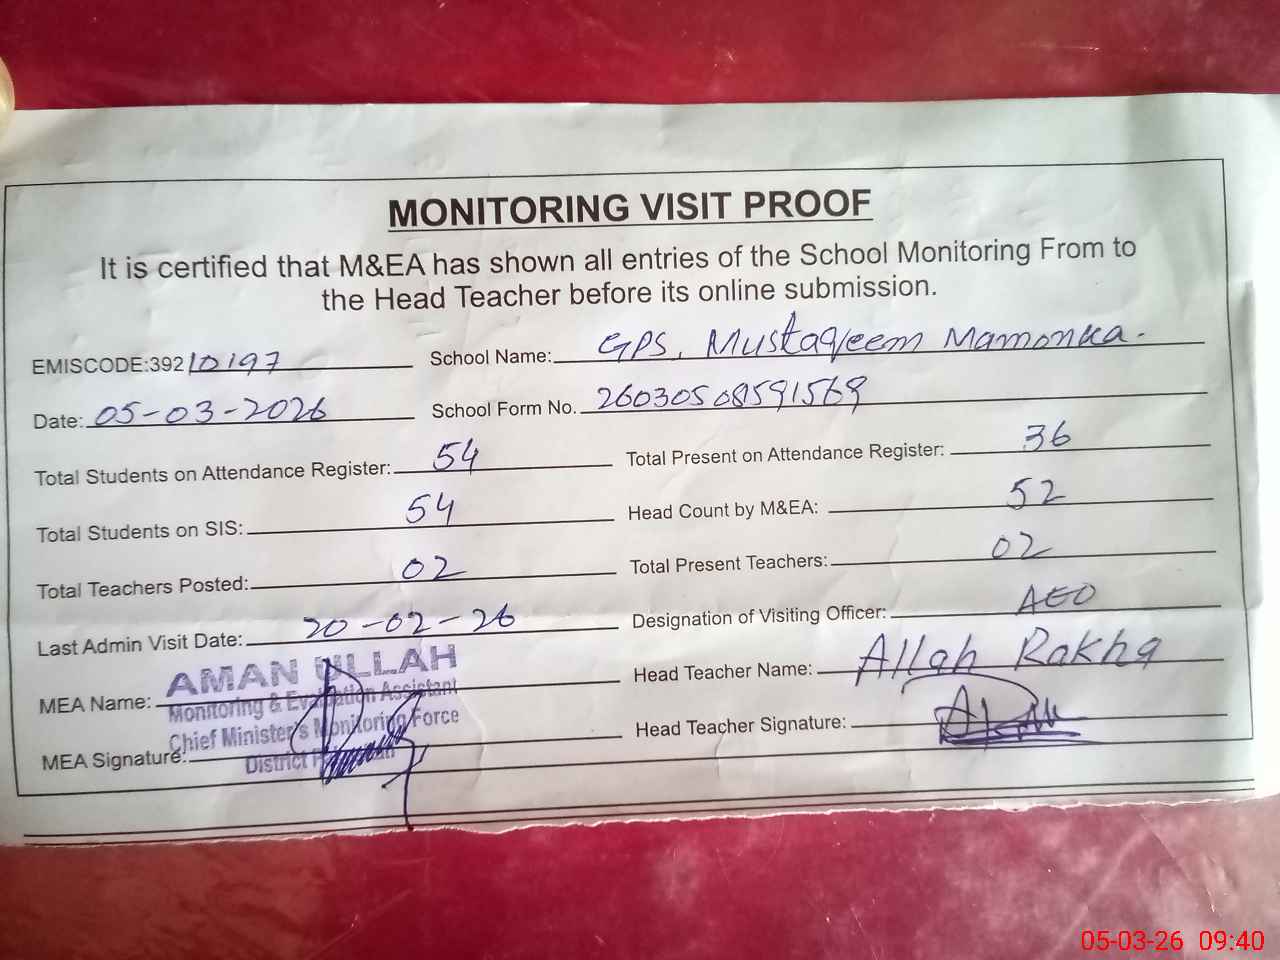 MONITORING VISIT PROOF
It is certified that M&EA has shown all entries of the School Monitoring From to
the Head Teacher before its online submission.
EMISCODE:39210197 School Name: GPS, Mustaqeem Mamonka.
Date: 05-03-2026 School Form No. 26030508591569
Total Students on Attendance Register: 54 Total Present on Attendance Register: 36
Total Students on SIS: 54 Head Count by M&EA: 52
Total Teachers Posted: 02 Total Present Teachers: 02
Last Admin Visit Date: 20-02-26 Designation of Visiting Officer: AEO
MEA Name: AMAN ULLAH Head Teacher Name: Allah Rakha
Monitoring & Evaluation Assistant
Chief Minister's Monitoring Force
District
MEA Signature: Head Teacher Signature:
05-03-26 09:40